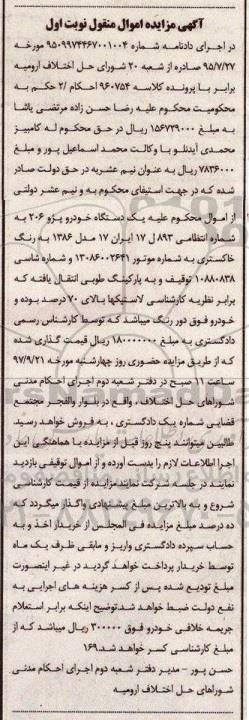 آگهی مزایده اموال منقول نوبت اول
در اجرای دادنامه شماره ۹۵۰۹۹۷۴۴۶۷۰۰۱۰۰۴ مورخه
۹۵/۷/۲۷ صادره از شعبه ۲۰ شورای حل اختلاف ارومیه
برابر با پرونده کلاسه ۹۶۰۷۵۴ احکام /۲ حکم به
محکومیت محکوم علیه رضا حسن زاده مرتضی پاشا
به مبلغ ۱۵۶۷۲۹۰۰۰ ریال در حق محکوم له کامبیز
محمدی آیدنلو با وکالت محمد اسماعیل پور و مبلغ
۷۸۳۶۰۰۰ ریال به عنوان نیم عشریه در حق دولت صادر
شده که در جهت استیفای محکوم به و نیم عشر دولتی
از اموال محکوم علیه یک دستگاه خودرو پژو ۲۰۶ به
شماره انتظامی ۸۹۳ ل ۱۷ ایران ۱۷ مدل ۱۳۸۶ به رنگ
خاکستری به شماره موتور ۱۳۰۸۶۰۰۲۶۴۱ و شماره شاسی
۱۰۸۸۰۸۳۸ توقیف و به پارکینگ طوبی انتقال یافته که
برابر نظریه کارشناسی لاستیکها بالای ۷۰ درصد بوده و
خودرو فوق دور رنگ میباشد که توسط کارشناس رسمی
دادگستری به مبلغ ۱۸۰۰۰۰۰۰۰ ریال قیمت گذاری شده
که از طریق مزایده حضوری روز چهارشنبه مورخه ۹۷/۹/۲۱
ساعت ۱۱ صبح در دفتر شعبه دوم اجرای احکام مدنی
شوراهای حل اختلاف ، واقع در بلوار والفجر مجتمع
قضایی شماره یک دادگستری ، به فروش خواهد رسید.
طالبین میتوانند پنج روز قبل از مزایده با هماهنگی این
اجرا اطلاعات لازم را بدست آورده و از اموال توقیفی بازدید
نمایند در جلسه شرکت نمایند مزایده از قیمت کارشناسی
شروع و به بالاترین مبلغ پیشنهادی واگذار میگردد که
ده درصد مبلغ مزایده فی المجلس از خریدار اخذ و به
حساب سپرده دادگستری واریز و مابقی ظرف یک ماه
توسط خریدار پرداخت خواهد گردید در غیر اینصورت
مبلغ تودیع شده پس از کسر هزینه های اجرایی به
نفع دولت ضبط خواهد شد.توضیح اینکه برابر استعلام
جریمه خلافی خودرو فوق ۳۰۰۰۰۰ ریال میباشد که از
مبلغ کارشناسی کسر خواهد شد.۱۶۹
حسن پور - مدیر دفتر شعبه دوم اجرای احکام مدنی
شوراهای حل اختلاف ارومیه